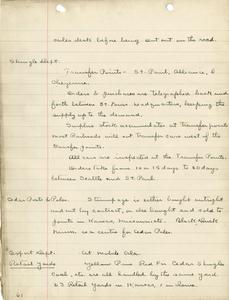 sales desk before being sent out on the road.
Shingle Dept.
Transfer Points - St. Paul, Alliance, &
Cheyenne.
Orders & purchases are telegraphed back and
forth between St. Paul and Seattle, keeping the
supply up to the demand.
Surplus stock accumulates at Transfer points
most Railroads will not Transfer cars west of the
Transfer points.
All cars are inspected at the Transfer Points.
Orders take from 10 to 15 days to 30 days
between Seattle and St. Paul.
Cedar Posts & Poles. Stumpage is either bought outright
and cut by contract, or else bought and sold to
points in Kansas,
is a centre for Cedar Poles.
Export Dept. At Mobile Ala.
Retail Yards Yellow Pine Red Fir Cedar Shingles
Coal, etc. are all handled by the same yard.
63 Retail Yards in Kansas, 1 in
61